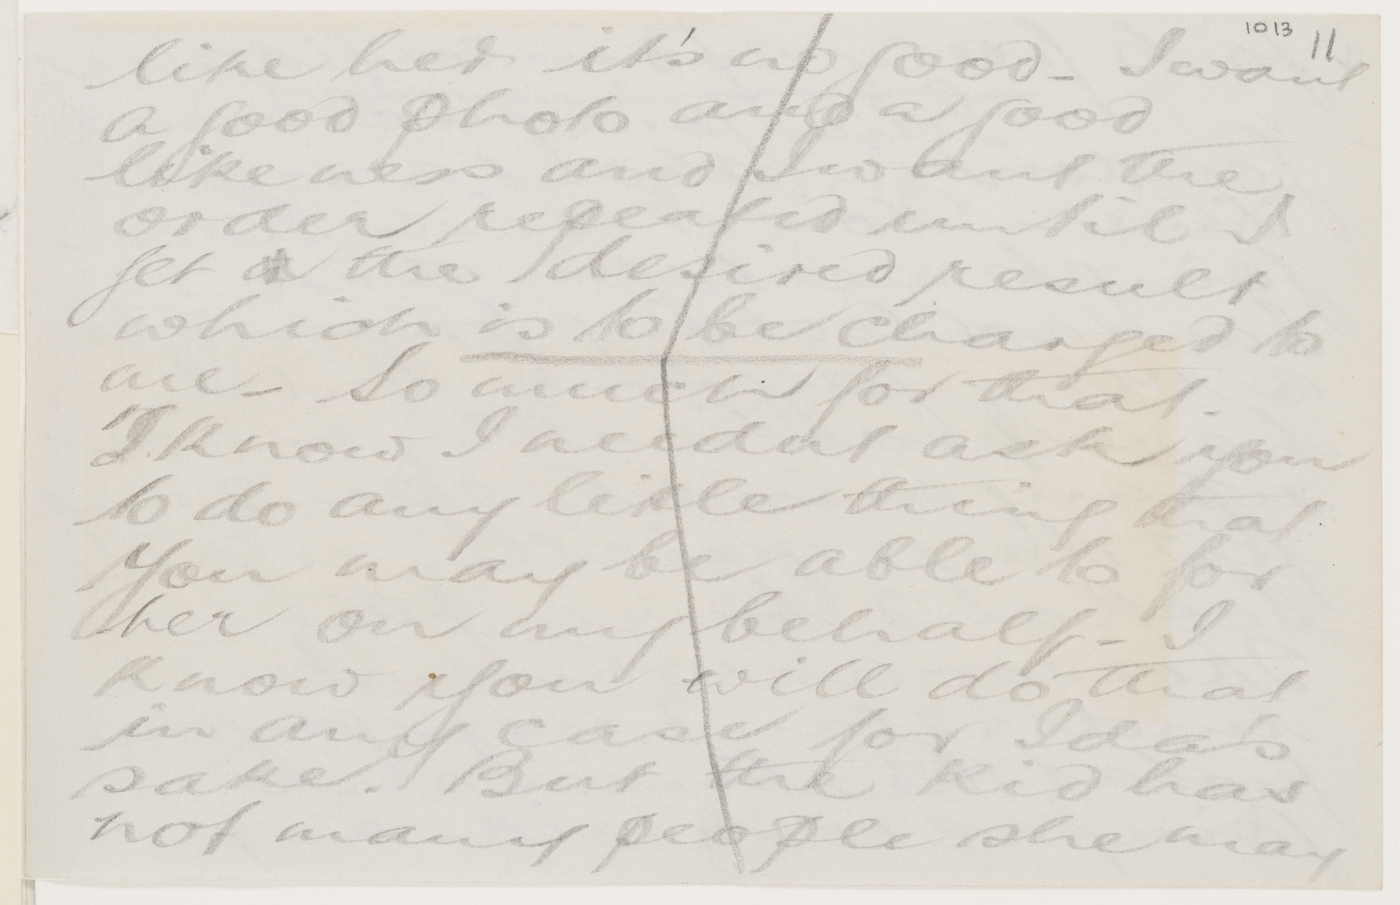 1013 11
like her it's no good - I want
a good photo and a good
likeness and I want the
order repeated until I
get the desired result
which is to be charged to
me - So much for that.
I know I neednt ask you
to do any little thing that
you may be able to for
her on my behalf - I
know you will do that
in any case for Ida's
sake. But the kid has
not many people she may